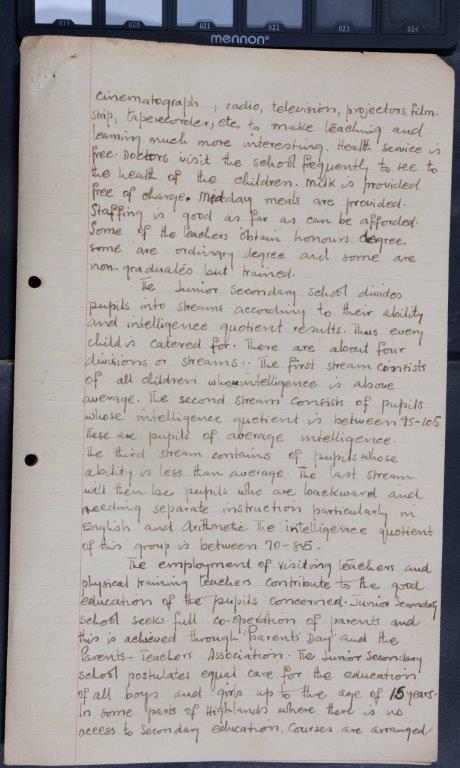 019 020 021 022 023 024
mennon®
cinematograph, radio, television, projectors, film-
strip, taperecorder, etc, to make teaching and
learning much more interesting. Health service is
free. Doctors visit the school frequently to see to
the health of the children. Milk is provided
free of charge. Midday meals are provided.
Staffing is good as far as can be afforded.
Some of the teachers obtain honours degree,
some are ordinary degree and some are
non-graduates but trained.
The Junior Secondary School divides
pupils into streams according to their ability
and intelligence quotient results. Thus every
child is catered for. There are about four
divisions or streams. The first stream consists
of all children whose intelligence is above
average. The second stream consists of pupils
whose intelligence quotient is between 95-105
These are pupils of aberage intelligence.
The third stream contains of pupils whose
ability is less than average. The last stream
will then be pupils who are backward and
needing separate instruction particularly in
English and Arithmetic. The intelligence quotient
of this group is between 70-85.
The employment of visiting teachers and
physical training teachers contribute to the good
education of the pupils concerned. Junior Secondary
school seeks full co-operation of parents and
this is achieved through "Parents' Day" and the
Parents-Teachers Association. The Junior Secondary
school postulates equal care for the education
of all boys and girls up to the age of 15 years.
In some parts of Highlands where there is no
access to Secondary education, courses are arranged